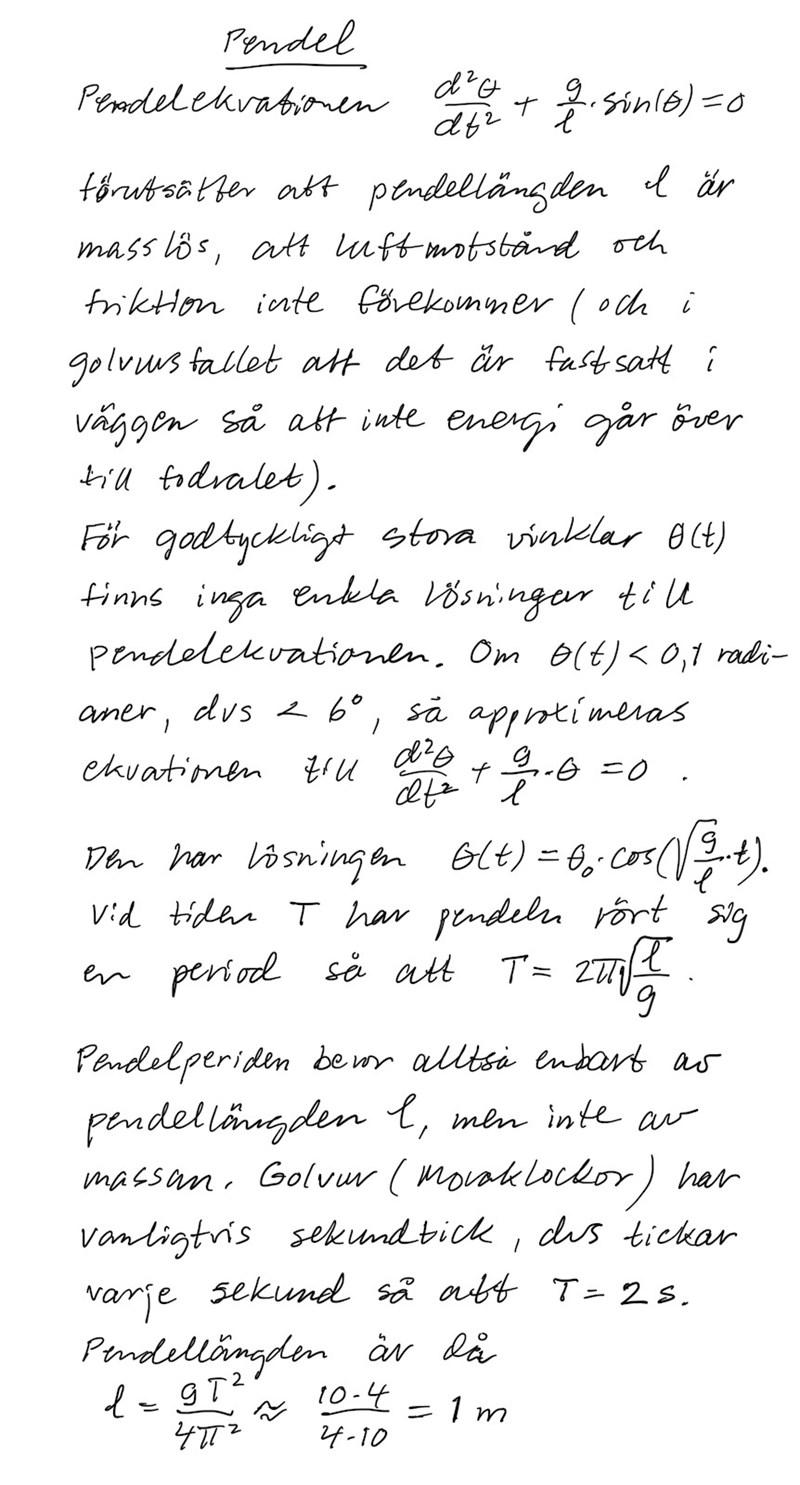 Pendel
Pendelekvationen d²θ/dt² + g/l · sin(θ) = 0
förutsätter att pendellängden l är
masslös, att luftmotstånd och
friktion inte förekommer (och i
golvursfallet att det är fastsatt i
väggen så att inte energi går över
till fodralet).
För godtyckligt stora vinklar θ(t)
finns inga enkla lösningar till
pendelekvationen. Om θ(t) < 0,1 radi-
aner, dvs < 6°, så approximeras
ekvationen till d²θ/dt² + g/l · θ = 0 .
Den har lösningen θ(t) = θ₀ · cos(√(g/l) · t).
Vid tiden T har pendeln rört sig
en period så att T = 2π√(l/g) .
Pendelperiden beror alltså enbart av
pendellängden l, men inte av
massan. Golvur (Moraklockor) har
vanligtvis sekundtick, dvs tickar
varje sekund så att T = 2 s.
Pendellängden är då
l = gT²/4π² ≈ 10·4/4·10 = 1 m